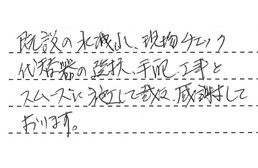 既設の水滅止、現物チェック
代替器の選択、手配、工事と
スムーズに施工して戴き、感謝して
おります。